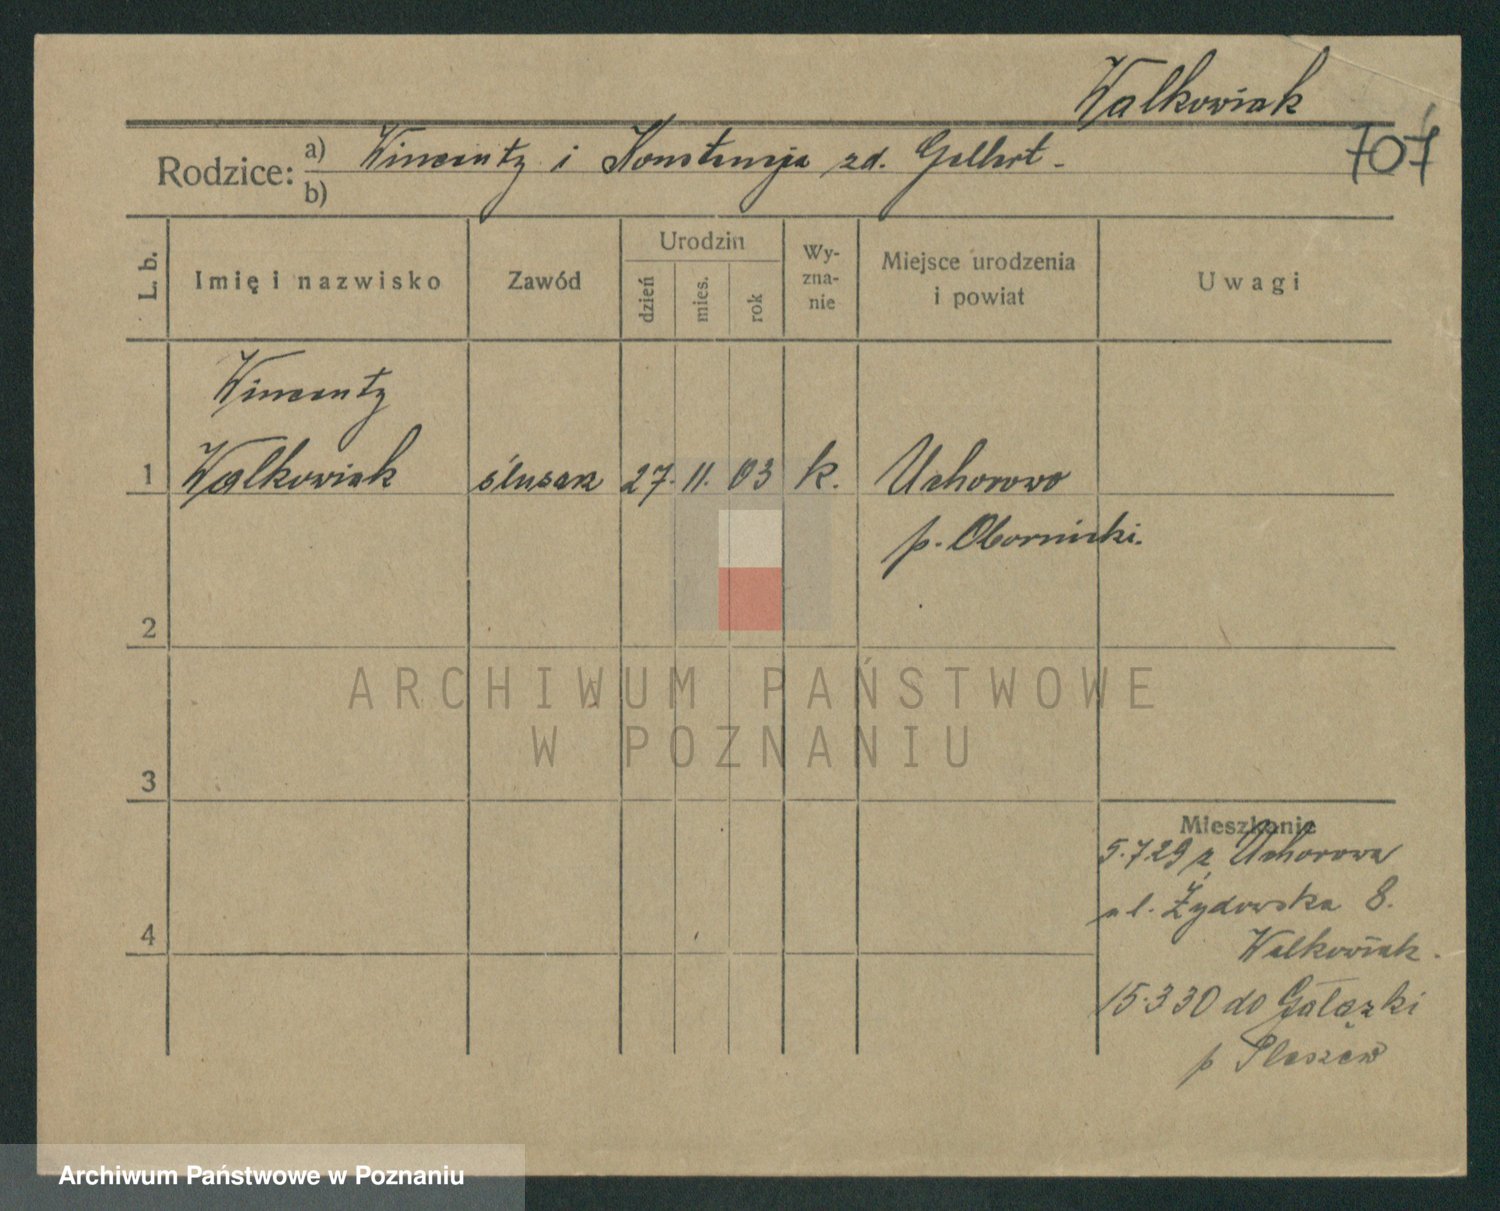 Walkowiak
707
Rodzice: a) Wincenty i Konstancja zd. Gellert -
b)
L. b. Imię i nazwisko Zawód Urodzin dzień mies. rok Wyznanie Miejsce urodzenia i powiat Uwagi
Wincenty
1 Walkowiak ślusarz 27. 11. 03 k. Uchorowo
p. Obornicki.
2
ARCHIWUM PAŃSTWOWE
W POZNANIU
3
Mieszkanie
5.7.29 z Uchorowa
ul. Żydowska 8.
4
Walkowiak.
15.3 30 do Gałązki
p Pleszew
Archiwum Państwowe w Poznaniu